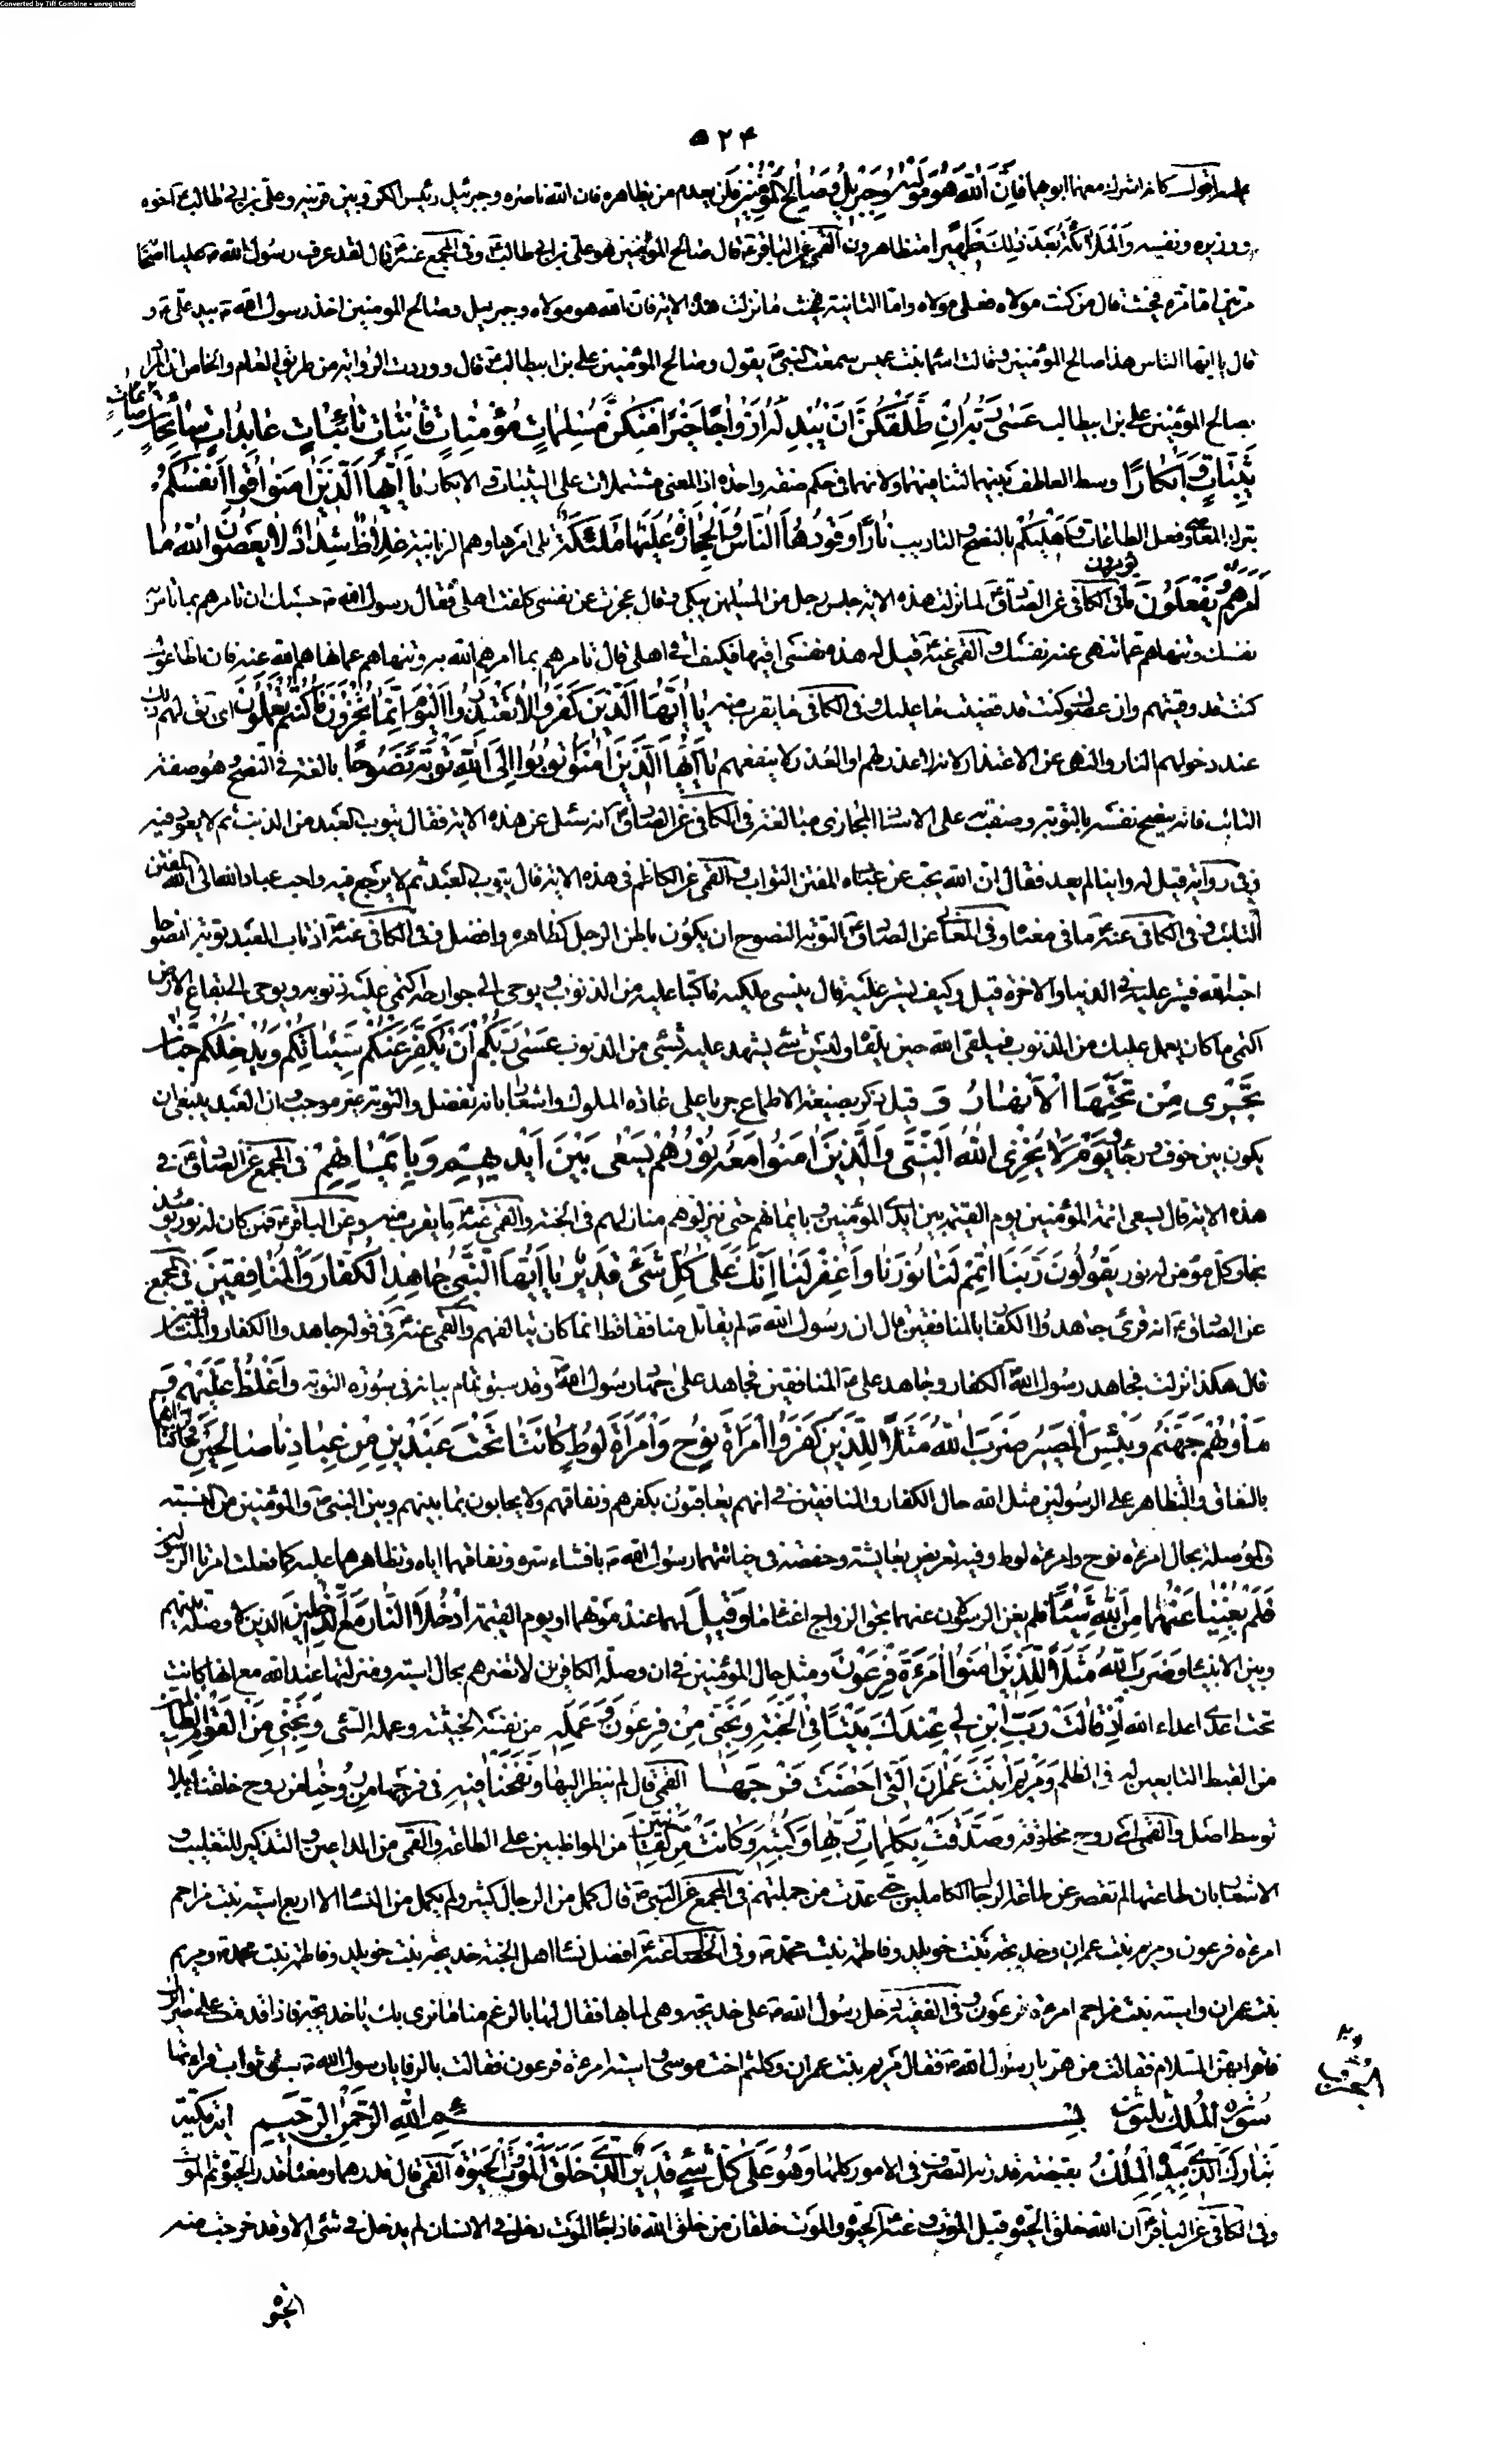 Converted by Tiff Combine - unregistered
۵۲۴
اقول كانه اشرك معهما ابويهما فَاِنَّ اللهَ هُوَ مَوْليٰهُ وَجِبْريلُ وَصٰالِحُ الْمُؤْمِنينَ فلن يعدم من يظاهره فان الله ناصره وجبرئيل رئيس الكروبيين قرينه وعلى بن ابى طالب ع اخوه
ووزيره ونفسه وَالْمَلٰائِكَةُ بَعْدَ ذٰلِكَ ظَهيرًا متظاهرون القمى عن الباقر ع قال صالح المؤمنين هو على بن ابى طالب ع وفى المجمع عنه ع قال لقد عرف رسول الله ص عليا اصحابه
مرتين اما مرة فحيث قال من كنت مولاه فعلى مولاه واما الثانية فحيث ما نزلت هذه الاية فان الله هو مولاه وجبريل وصالح المومنين اخذ رسول الله ص بيد على ع و
قال يا ايها الناس هذا صالح المؤمنين وقالت اسماء بنت عميس سمعت النبى ص يقول وصالح المؤمنين على بن ابيطالب ع قال ووردت الرواية من طريق العام والخاص ان المراد
بصالح المؤمنين على بن ابيطالب عَسىٰ رَبُّهُ اِنْ طَلَّقَكُنَّ اَنْ يُبْدِلَهُ اَزْوٰاجًا خَيْرًا مِنْكُنَّ مُسْلِمٰاتٍ مُؤْمِنٰاتٍ قٰانِتٰاتٍ تٰائِبٰاتٍ عٰابِدٰاتٍ سٰائِحٰاتٍ صائمات
ثَيِّبٰاتٍ وَاَبْكٰارًا وسط العاطف بينهما لتنافيهما ولانهما فى حكم صفة واحدة اذ المعنى مشتملات على الثيبات والابكار يٰا اَيُّهَا الَّذينَ اٰمَنُوا قُوا اَنْفُسَكُمْ
بترك المعاصى وفعل الطاعات وَاَهْليكُمْ بالنصح والتاديب نٰارًا وَقُودُهَا النّٰاسُ وَالْحِجٰارَةُ عَلَيْهٰا مَلٰئِكَةٌ تلى امرها وهم الزبانية غِلٰاظٌ شِدٰادٌ لٰا يَعْصُونَ اللهَ مٰا
اَمَرَهُمْ وَيَفْعَلُونَ مٰا يؤمرون فى الكافى عن الصادق ع لما نزلت هذه الاية جلس رجل من المسلمين يبكى وقال عجزت عن نفسى كلفت اهلى فقال رسول الله ص حسبك ان تامرهم بما تامر به
نفسك وتنهاهم عما تنهى عنه نفسك والقمى عنه ع قيل له هذه نفسى اقيها فكيف اقى اهلى قال تامرهم بما امرهم الله به وتنهاهم عما نهاهم الله عنه فان اطاعوك
كنت قد وقيتهم وان عصوك كنت قد قضيت ما عليك وفى الكافى ما يقرب منه يٰا اَيُّهَا الَّذينَ كَفَرُوا لٰا تَعْتَذِرُوا الْيَوْمَ اِنَّمٰا تُجْزَوْنَ مٰا كُنْتُمْ تَعْمَلُونَ اى يق لهم ذلك
عند دخولهم النار والنهى عن الاعتذار لانه لا عذر لهم او العذر لا ينفعهم يٰا اَيُّهَا الَّذينَ اٰمَنُوا تُوبُوا اِلَى اللهِ تَوْبَةً نَصُوحًا بالغة فى النصح وهو صفة
التائب فانه ينصح نفسه بالتوبة وصفت به على الاسناد المجازى مبالغة فى الكافى عن الصادق ع انه سئل عن هذه الاية فقال يتوب العبد من الذنب ثم لا يعود فيه
وفى رواية قيل له واينا لم يعد فقال ان الله يحب من عباده المفتن التواب والقمى عن الكاظم فى هذه الاية قال يتوب العبد ثم لا يرجع فيه واحب عباد الله الى الله المفتن
التائب وفى الكافى عنه ع ما فى معناه وفى المعانى عن الصادق ع التوبة النصوح ان يكون باطن الرجل كظاهره وافضل وفى الكافى عنه ع اذا تاب العبد توبة نصوحا
احبه الله فستر عليه فى الدنيا والاخرة قيل وكيف يستر عليه قال ينسى ملكيه ما كتبا عليه من الذنوب ويوحى الى جوارحه اكتمى عليه ذنوبه ويوحى الى بقاع الارض
اكتمى ما كان يعمل عليك من الذنوب فيلقى الله حين يلقاه وليس شئ يشهد عليه بشئ من الذنوب عَسىٰ رَبُّكُمْ اَنْ يُكَفِّرَ عَنْكُمْ سَيِّئٰاتِكُمْ وَيُدْخِلَكُمْ جَنّٰاتٍ
تَجْرى مِنْ تَحْتِهَا الْاَنْهٰارُ وَ قيل ذكر بصيغة الاطماع جريا على عادة الملوك واشعارا بانه تفضل والتوبة غير موجب وان العبد ينبغى ان
يكون بين خوف ورجاء يَوْمَ لٰا يُخْزِى اللهُ النَّبِىَّ وَالَّذينَ اٰمَنُوا مَعَهُ نُورُهُمْ يَسْعىٰ بَيْنَ اَيْديهِمْ وَبِاَيْمٰانِهِمْ فى المجمع عن الصادق ع فى
هذه الاية قال يسعى ائمة المؤمنين يوم القيمة بين ايدى المؤمنين وبايمانهم حتى ينزلوهم منازلهم فى الجنة والقمى عنه ع ما يقرب منه وعن الباقر ع فمن كان له نور يومئذ
نجا وكل مؤمن له نور يَقُولُونَ رَبَّنٰا اَتْمِمْ لَنٰا نُورَنٰا وَاغْفِرْ لَنٰا اِنَّكَ عَلىٰ كُلِّ شَىْءٍ قَديرٌ يٰا اَيُّهَا النَّبِىُّ جٰاهِدِ الْكُفّٰارَ وَالْمُنٰافِقينَ فى المجمع
عن الصادق ع انه قرئ جاهدوا الكفار بالمنافقين قال ان رسول الله ص لم يقاتل منافقا قط انما كان يتالفهم والقمى عنه ع فى قوله جاهدوا الكفار والمنافقين
قال هكذا نزلت فجاهد رسول الله ص الكفار وجاهد على ع المنافقين فجاهد على ع جهاد رسول الله ص وقد سبق تمام بيانه فى سورة التوبة وَاغْلُظْ عَلَيْهِمْ وَ
مَأْوٰيهُمْ جَهَنَّمُ وَبِئْسَ الْمَصيرُ ضَرَبَ اللهُ مَثَلًا لِلَّذينَ كَفَرُوا امْرَاَةَ نُوحٍ وَامْرَاَةَ لُوطٍ كٰانَتٰا تَحْتَ عَبْدَيْنِ مِنْ عِبٰادِنٰا صٰالِحَيْنِ فَخٰانَتٰاهُمٰا
بالنفاق والتظاهر على الرسولين مثل الله حال الكفار والمنافقين فى انهم يعاقبون بكفرهم ونفاقهم ولا يحابون بما بينهم وبين النبى ص والمؤمنين من النسبة
والوصلة بحال امرءة نوح وامرءة لوط وفيه تعريض بعايشة وحفصة فى خيانتهما رسول الله ص بافشاء سره ونفاقهما اياه وتظاهرهما عليه كما فعلت امرتا الرسولين
فَلَمْ يُغْنِيٰا عَنْهُمٰا مِنَ اللهِ شَيْئًا فلم يغن الرسولان عنهما بحق الزواج اغناء ما وَقيلَ لهما عند موتهما او يوم القيمة ادْخُلَا النّٰارَ مَعَ الدّٰاخِلينَ الذين لا وصلة بينهم
وبين الانبياء وَضَرَبَ اللهُ مَثَلًا لِلَّذينَ اٰمَنُوا امْرَءَةَ فِرْعَوْنَ ومثل حال المؤمنين فى ان وصلة الكافرين لا تضرهم بحال اسية ومنزلتها عند الله مع انها كانت
تحت اعدى اعداء الله اِذْ قٰالَتْ رَبِّ ابْنِ لى عِنْدَكَ بَيْتًا فِى الْجَنَّةِ وَنَجِّنى مِنْ فِرْعَوْنَ وَعَمَلِهِ من نفسه الخبيثة وعمله السئ وَنَجِّنى مِنَ الْقَوْمِ الظّٰالِمينَ
من القبط التابعين له فى الظلم وَمَرْيَمَ ابْنَتَ عِمْرٰانَ الَّتى اَحْصَنَتْ فَرْجَهٰا القمى قال لم ينظر اليها وَنَفَخْنٰا فيهِ فى فرجها مِنْ رُوحِنٰا من روح خلقناه بلا
توسط اصل والقمى اى روح مخلوقة وَصَدَّقَتْ بِكَلِمٰاتِ رَبِّهٰا وَكُتُبِهِ وَكٰانَتْ مِنَ الْقٰانِتينَ من المواظبين على الطاعة والقمى من الداعين والتذكير للتغليب و
الاشعار بان طاعتها لم تقصر عن طاعة الرجال الكاملين حتى عدت من جملتهم فى المجمع عن النبى ص قال كمل من الرجال كثير ولم يكمل من النساء الا اربع اسية بنت مزاحم
امرءة فرعون ومريم بنت عمران وخديجة بنت خويلد وفاطمة بنت محمد ص وفى الخصال عنه ع افضل نساء اهل الجنة خديجة بنت خويلد وفاطمة بنت محمد ص ومريم
بنت عمران واسية بنت مزاحم امرءة فرعون وفى الفقيه دخل رسول الله ص على خديجة وهى لما بها فقال لها بالرغم منا ما نرى بك يا خديجة فاذا قدمت على ضرائرك
فاقرايهن السلام فقالت من هن يا رسول الله ص فقال مريم بنت عمران وكلثم اخت موسى واسية امرءة فرعون فقالت بالرفا يا رسول الله ص سبق ثواب قراءتها
سُورَة الْمُلْك ثلثون بِسْمِ اللهِ الرَّحْمٰنِ الرَّحيمِ اية مكية
تَبٰارَكَ الَّذى بِيَدِهِ الْمُلْكُ بقبضة قدرته التصرف فى الامور كلها وَهُوَ عَلىٰ كُلِّ شَىْءٍ قَديرٌ اَلَّذى خَلَقَ الْمَوْتَ وَالْحَيٰوةَ القمى قال قدرهما ومعناه قدر الحيوة ثم الموت
وفى الكافى عن الباقر ع ان الله خلق الحيوة قبل الموت وعنه ع الحيوة والموت خلقان من خلق الله فاذا جاء الموت دخل فى الانسان لم يدخل فى شئ الا وقد خرجت منه
الحيوة